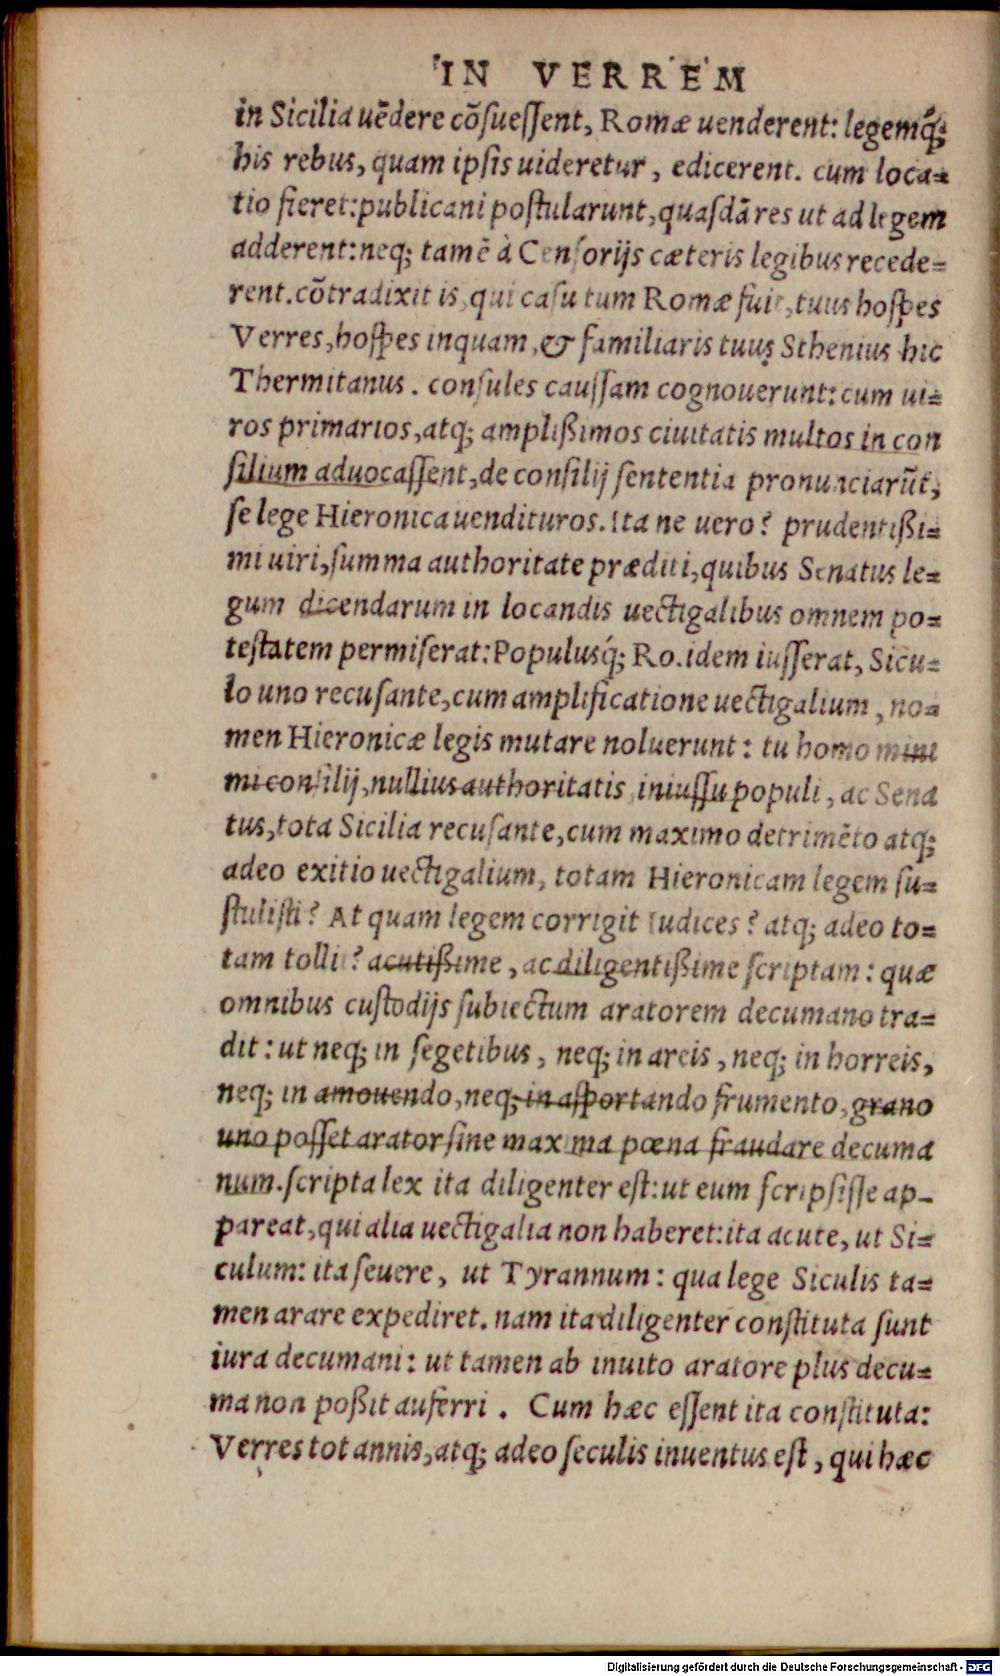 IN VERREM
in Sicilia uēdere cōsueſſent, Romæ uenderent: legemq́;
his rebus, quam ipſis uideretur, edicerent. cum loca-
tio fieret: publicani poſtularunt, quaſdā res ut ad legem
adderent: neq; tamē à Cenſorijs cæteris legibus recede-
rent. cōtradixit is, qui caſu tum Romæ fuit, tuus hoſpes
Verres, hoſpes inquam, & familiaris tuus Sthenius hic
Thermitanus. conſules cauſſam cognouerunt: cum ui-
ros primarios, atq; ampliſſimos ciuitatis multos in con
ſilium aduocaſſent, de conſilij ſententia pronunciarūt,
ſe lege Hieronica uendituros. Ita ne uero? prudentißi-
mi uiri, ſumma authoritate præditi, quibus Senatus le-
gum dicendarum in locandis uectigalibus omnem po-
teſtatem permiſerat: Populusq́; Ro. idem iuſſerat, Sicu-
lo uno recuſante, cum amplificatione uectigalium, no-
men Hieronicæ legis mutare noluerunt: tu homo mini
mi conſilij, nullius authoritatis iniuſſu populi, ac Sena
tus, tota Sicilia recuſante, cum maximo detrimēto atq;
adeo exitio uectigalium, totam Hieronicam legem ſu-
ſtuliſti? At quam legem corrigit Iudices? atq; adeo to-
tam tollit? acutißime, ac diligentißime ſcriptam: quæ
omnibus cuſtodijs ſubiectum aratorem decumano tra-
dit: ut neq; in ſegetibus, neq; in areis, neq; in horreis,
neq; in amouendo, neq; in aſportando frumento, grano
uno poſſet arator ſine maxima pœna fraudare decuma
num. ſcripta lex ita diligenter eſt: ut eum ſcripſiſſe ap-
pareat, qui alia uectigalia non haberet: ita acute, ut Si-
culum: ita ſeuere, ut Tyrannum: qua lege Siculis ta-
men arare expediret. nam ita diligenter conſtituta ſunt
iura decumani: ut tamen ab inuito aratore plus decu-
ma non poßit auferri. Cum hæc eſſent ita conſtituta:
Verres tot annis, atq; adeo ſeculis inuentus eſt, qui hæc
Digitalisierung gefördert durch die Deutsche Forschungsgemeinschaft - DFG